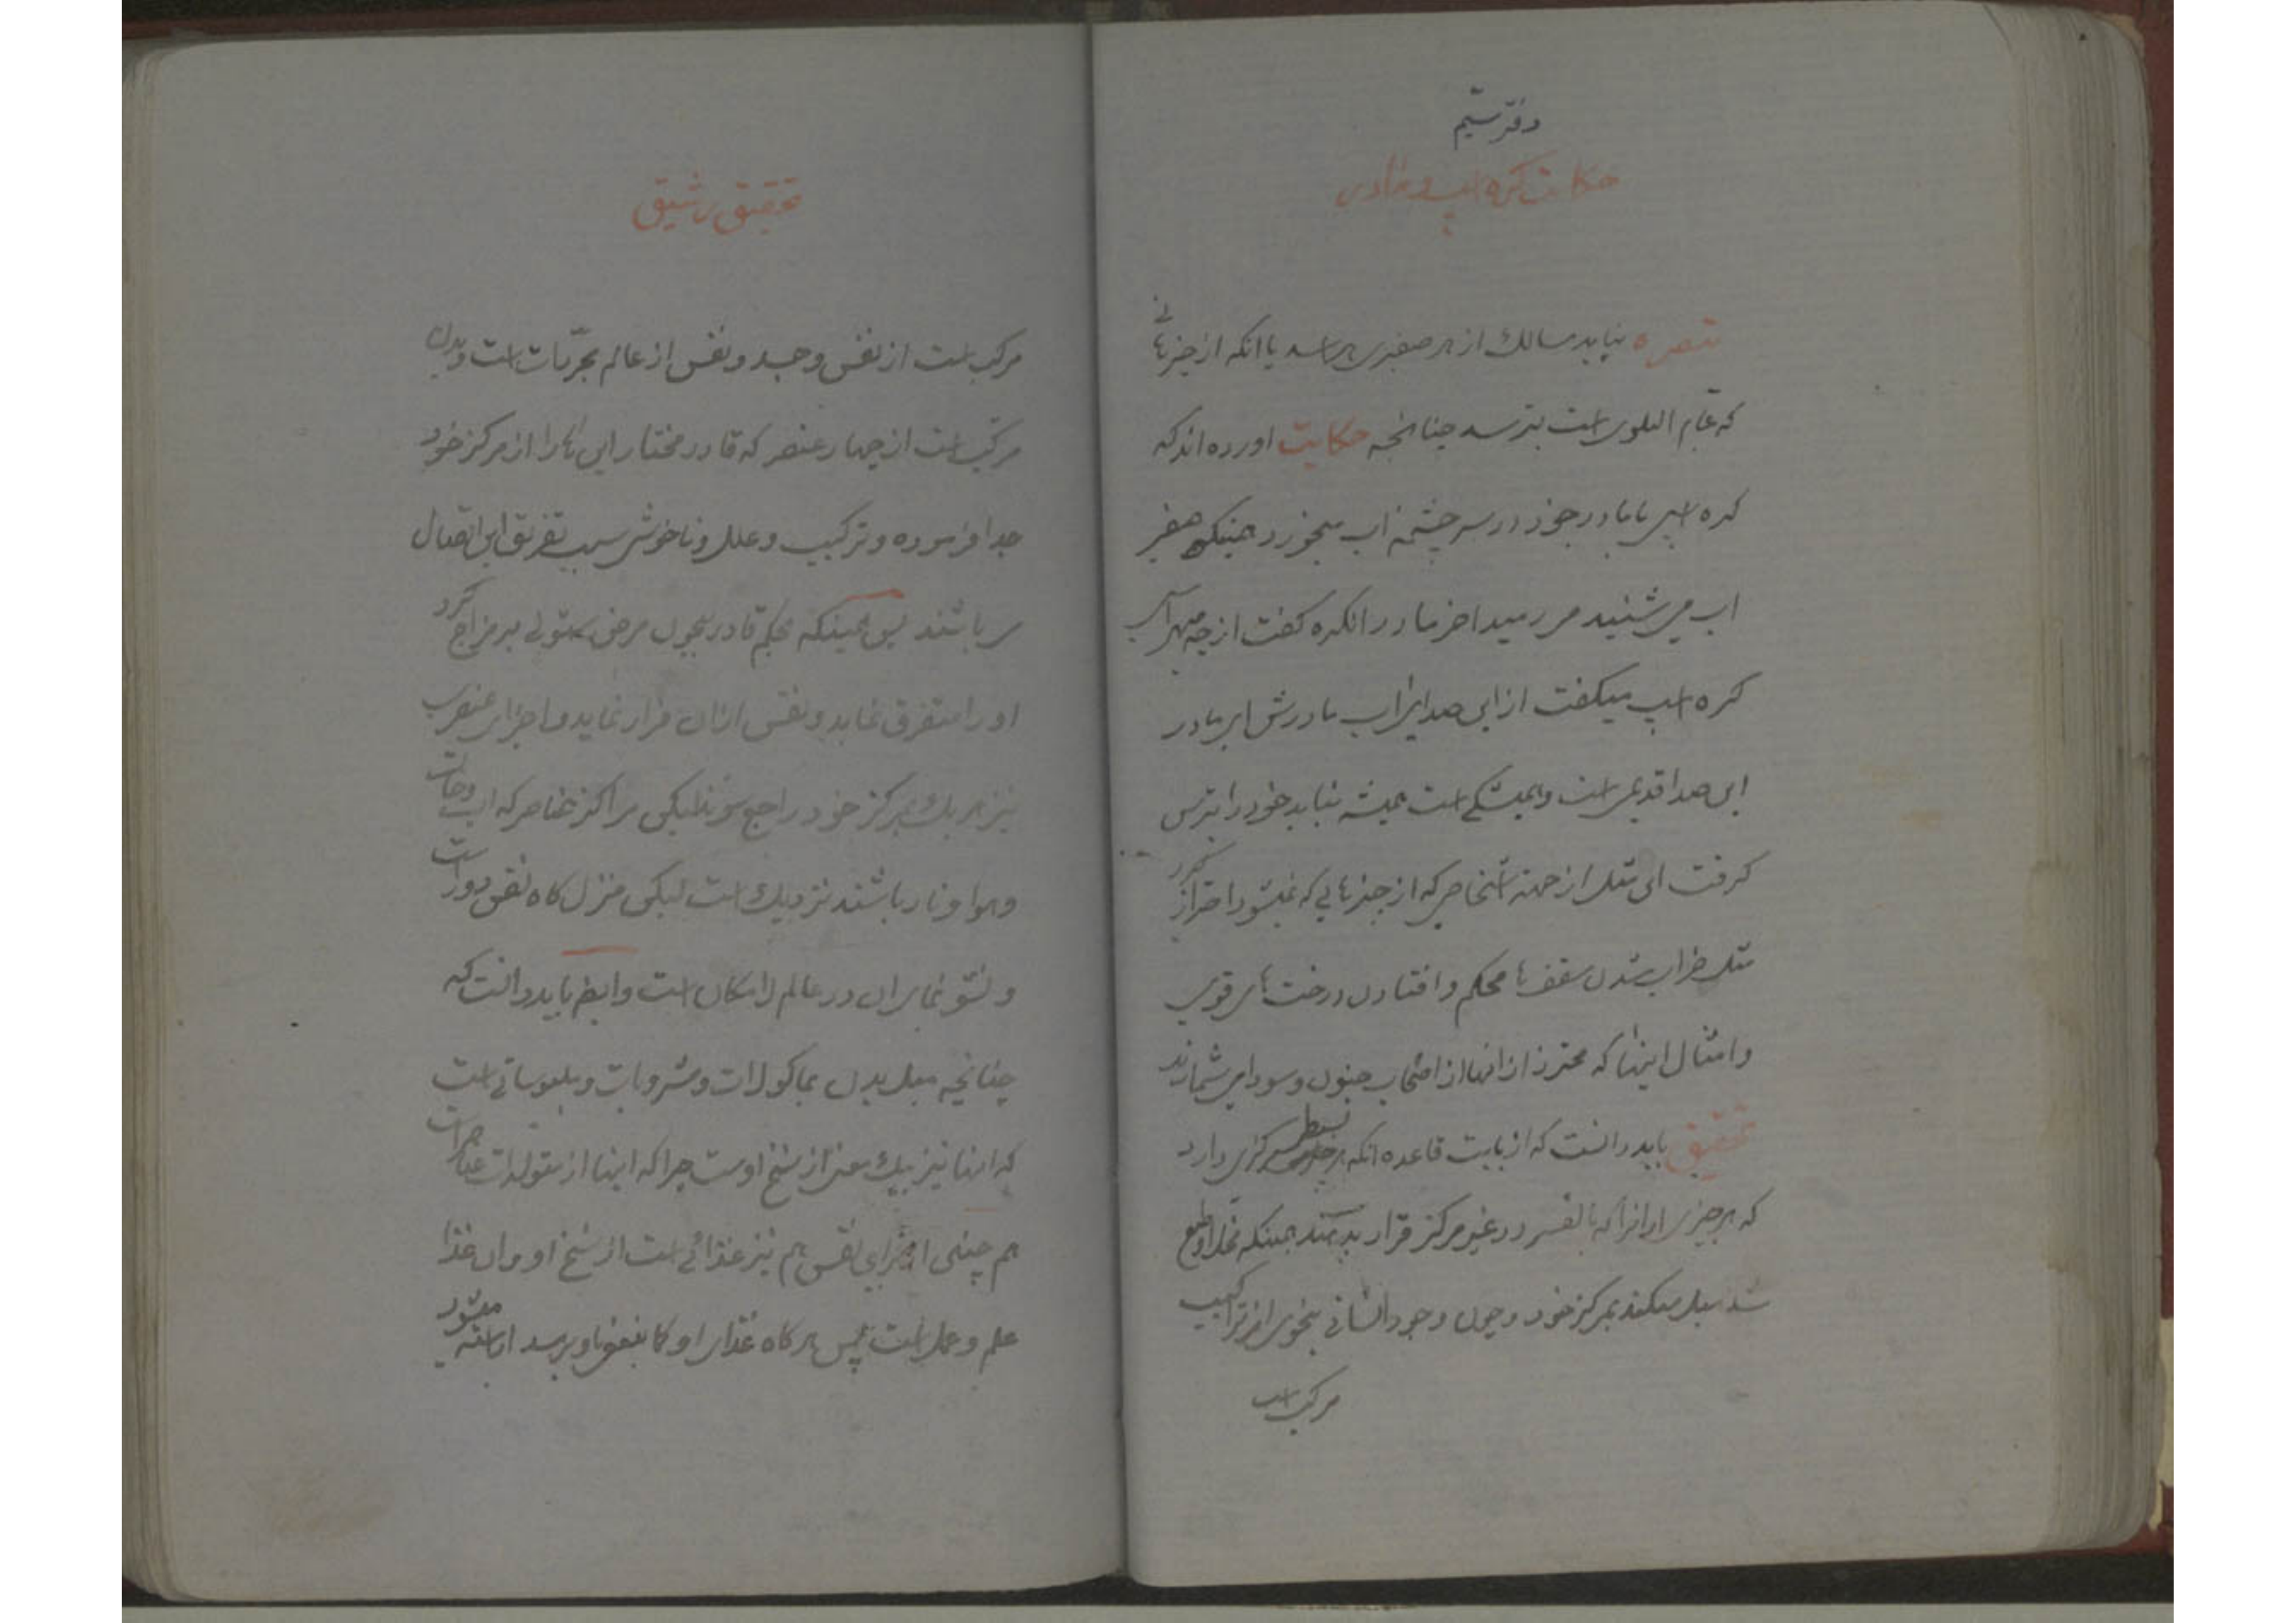 دفتر سیم
حکایت کره اسب و مادرش
تبصره نباید سالك از هر صفیری هراسد یا انکه از چیزهائی
که عام البلوی است بترسد چنانچه حکایت اورده اند که
کره اسبی با مادر خود در سر چشمه اب میخورد همینکه صفیر
اب می شنید می رمید اخر مادر انکره کفت از چه میهراسی
کره اسب میکفت از این صدای اب مادرش ای مادر
این صدا قدیمی است و همیشکی است همیشه نباید خود را بترس
کرفت این مثل از جهة اشخاصی که از چیزهایی که نمیشود احتراز کرد
مثل خراب شدن سقف ها محکم و افتادن درخت های قوی
و امثال اینها که محترز از انها از اصحاب جنون و سودا می شمارند
تحقیق باید دانست که از بابت قاعده انکه هر مرکزی دارد
که هر چیزی او را که بالقسر در غیر مرکز قرار بدهند همینکه
شد میل میکند بمرکز خود و چون وجود انسانی بنحوی از تراکیب
مرکب است
تحقیق رشیق
مرکب است از نفس و جسد و نفس از عالم مجردات است و بدن
مرکب است از چهار عنصر که قادر مختار این ها را از مرکز خود
جدا فرموده و ترکیب و علل و ناخوشی سبب تفریق این اتصال
می باشند پس همینکه بحکم قادر بیچون مرض مستولی بر مزاج کردد
او را متفرق نماید و نفس از ان فرار نماید و اجزای عنصری
نیز هر یك بمرکز خود راجع شوند لیکن مراکز عناصر که اب و خاك
و هوا و نار باشند نزدیك است لیکن منزل کاه نفس دور است
و نشو نمای ان در عالم لامکان است و ایضا باید دانست که
چنانچه میل بدن بماکولات و مشروبات و ملبوساتی است
که انها نیز بیك معنی از سنخ اوست چرا که اینها از متولدات عناصر است
هم چنین از برای نفس هم نیز غذائی است از سنخ او و ان غذا
علم و عمل است پس هر کاه غذای او کما ینبغی باو برسد اراسته میشود